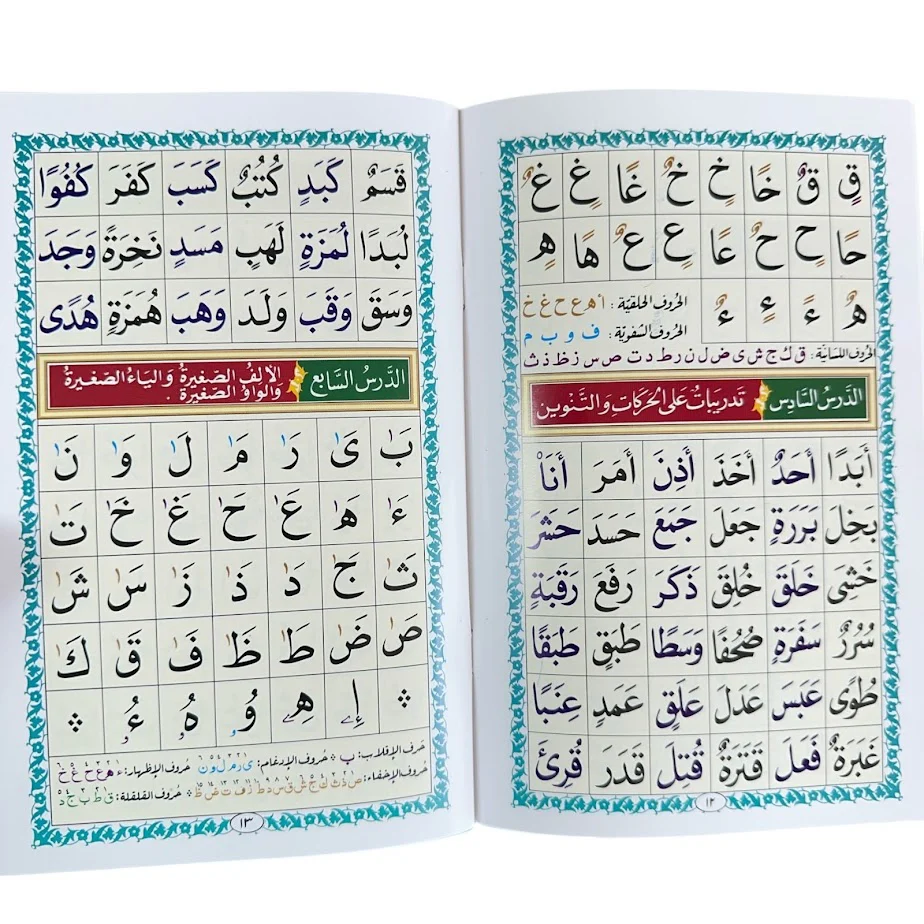 قٍ قٌ خًا خٍ خٌ غًا غٍ غٌ
حًا حٍ حٌ عًا عٍ عٌ هًا هٍ
هٌ ءً ءٍ ءٌ
الحروف الحلقيّة : أ ه ع ح غ خ
الحروف الشفويّة : ف و ب م
الحروف اللسانيّة: ق ك ج ش ى ض ل ن ر ط د ت ص س ز ظ ذ ث
الدَّرسُ السَّادِس تَدريبَاتٌ عَلى الحَرَكَاتِ وَالتَّنْوِين
أَبَدًا أَحَدٌ أَخَذَ أَذِنَ أَمَرَ أَنَا۠
بَخِلَ بَرَرَةٍ جَعَلَ جَمَعَ حَسَدَ حَشَرَ
خَشِىَ خَلَقَ خُلِقَ ذَكَرَ رَفَعَ رَقَبَةٍ
سُرُرٌ سَفَرَةٍ صُحُفًا وَسَطًا طَبَقٍ طَبَقًا
طُوًى عَبَسَ عَدَلَ عَلَقٍ عَمَدٍ عِنَبًا
غَبَرَةٌ فَعَلَ قَتَرَةٌ قُتِلَ قَدَرَ قُرِئَ
١٢
قَسَمٌ كَبَدٍ كُتُبٌ كَسَبَ كَفَرَ كُفُوًا
لُبَدًا لُمَزَةٍ لَهَبٍ مَسَدٍ نَخِرَةً وَجَدَ
وَسَقَ وَقَبَ وَلَدَ وَهَبَ هُمَزَةٍ هُدًى
الدَّرسُ السَّابِع الألِفُ الصَّغِيرَةُ وَاليَاءُ الصَّغِيرَةُ
وَالوَاوُ الصَّغِيرَةُ .
بٰ ىٰ رٰ مٰ لٰ وٰ نٰ
ءٰ هٰ عٰ حٰ غٰ خٰ تٰ
ثٰ جٰ دٰ ذٰ زٰ سٰ شٰ
صٰ ضٰ طٰ ظٰ فٰ قٰ كٰ
إِۦ هِۦ وُۥ هُۥ ءُۥ
حَرف الإقلاب: ب حُروف الإدغام: ى ر م ل و ن حُروف الإظهار: ء ه ع ح غ خ
حُروف الإخفاء: ص ذ ث ك ج ش ق س د ط ز ف ت ض ظ حُروف القلقلة: ق ط ب ج د
١٣